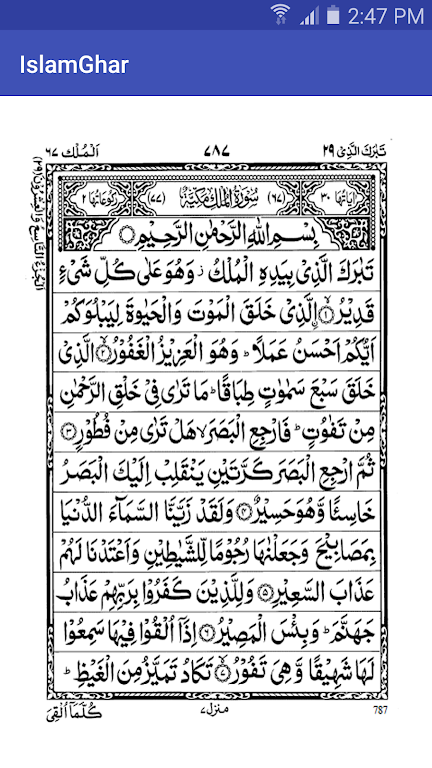 2:47 PM
IslamGhar
تَبٰرَكَ الَّذِیْ ٢٩
٧٨٧
اَلْمُلْك ٦٧
اٰيَاتُهَا ٣٠
(٦٧) سُوْرَةُ الْمُلْكِ مَكِّيَّةٌ (٧٧)
رُكُوْعَاتُهَا ٢
بِسْمِ اللّٰهِ الرَّحْمٰنِ الرَّحِيْمِ ○
تَبٰرَكَ الَّذِیْ بِیَدِهِ الْمُلْكُ ز وَهُوَ عَلٰی كُلِّ شَیْءٍ
قَدِیْرُ ۙ﴿١﴾ اِۨلَّذِیْ خَلَقَ الْمَوْتَ وَالْحَیٰوةَ لِیَبْلُوَكُمْ
اَیُّكُمْ اَحْسَنُ عَمَلًا ؕ وَهُوَ الْعَزِیْزُ الْغَفُوْرُ ۙ﴿٢﴾ الَّذِیْ
خَلَقَ سَبْعَ سَمٰوٰتٍ طِبَاقًا ؕ مَا تَرٰی فِیْ خَلْقِ الرَّحْمٰنِ
مِنْ تَفٰوُتٍ ؕ فَارْجِعِ الْبَصَرَ ۙ هَلْ تَرٰی مِنْ فُطُوْرٍ ﴿٣﴾
ثُمَّ ارْجِعِ الْبَصَرَ كَرَّتَیْنِ یَنْقَلِبْ اِلَیْكَ الْبَصَرُ
خَاسِئًا وَّهُوَ حَسِیْرٌ ﴿٤﴾ وَلَقَدْ زَیَّنَّا السَّمَآءَ الدُّنْیَا
بِمَصَابِیْحَ وَجَعَلْنٰهَا رُجُوْمًا لِّلشَّیٰطِیْنِ وَاَعْتَدْنَا لَهُمْ
عَذَابَ السَّعِیْرِ ﴿٥﴾ وَلِلَّذِیْنَ كَفَرُوْا بِرَبِّهِمْ عَذَابُ
جَهَنَّمَ ؕ وَبِئْسَ الْمَصِیْرُ ﴿٦﴾ اِذَاۤ اُلْقُوْا فِیْهَا سَمِعُوْا
لَهَا شَهِیْقًا وَّهِیَ تَفُوْرُ ۙ﴿٧﴾ تَكَادُ تَمَیَّزُ مِنَ الْغَیْظِ ؕ
اَلْجُزْءُ التَّاسِعُ وَالْعِشْرُوْنَ (٢٩)
كُلَّمَاۤ اُلْقِیَ
منزل ٧
787